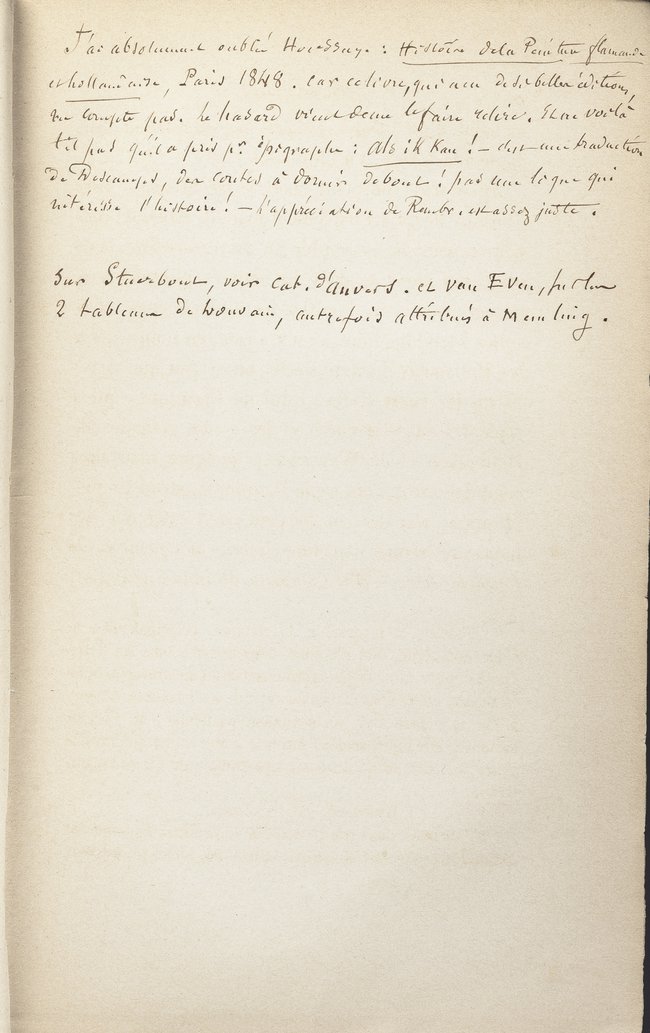 J'ai absolument oublié Houssaye : Histoire de la Peinture flamande
et hollandaise, Paris 1848. Car ce livre, qui a eu de si belles éditions,
ne compte pas. Le hasard vient de me le faire relire. Et ne voilà
t'il pas qu'il a pris pr épigraphe : Als ik Kan ! — c'est une traduction
de Descamps, des contes à dormir debout ! pas une ligne qui
intéresse l'histoire ! — L'appréciation de Rembr. est assez juste.
Sur Stuerbout, voir cat. d'Anvers. et van Even, sur les
2 tableaux de Louvain, autrefois attribués à Memling.